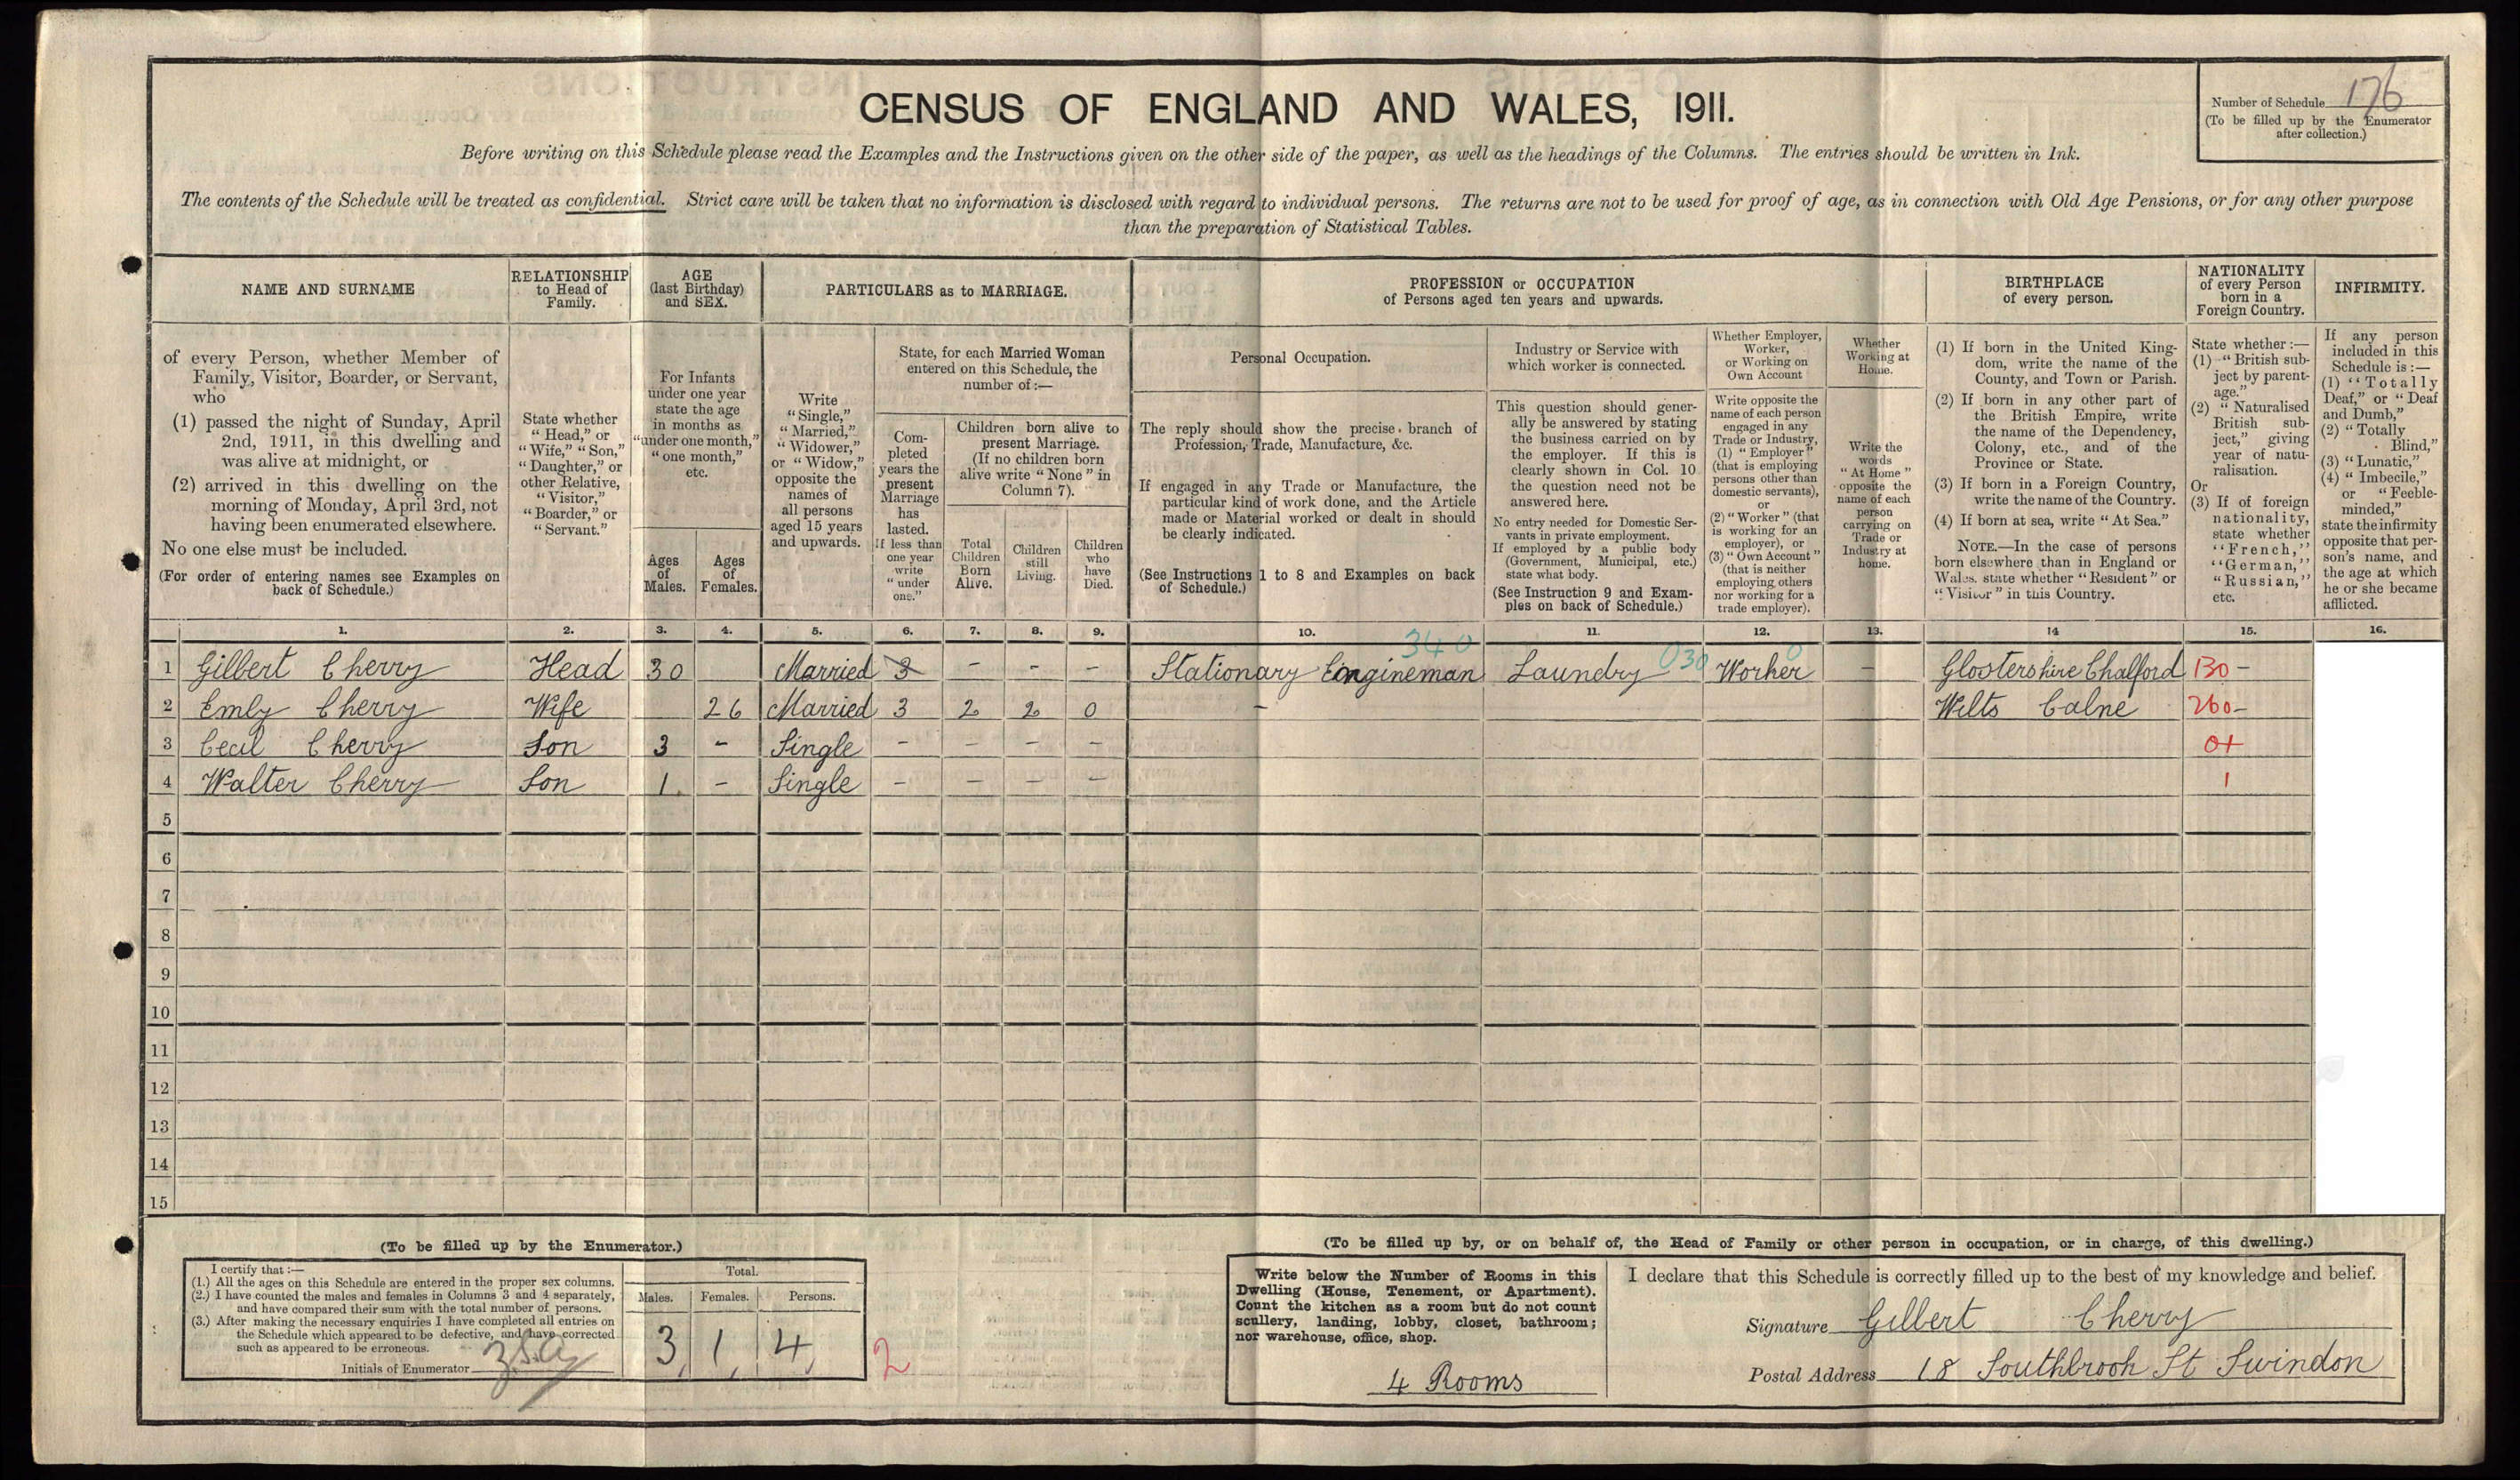 CENSUS OF ENGLAND AND WALES, 1911.
Number of Schedule 176
(To be filled up by the Enumerator
after collection.)
Before writing on this Schedule please read the Examples and the Instructions given on the other side of the paper, as well as the headings of the Columns. The entries should be written in Ink.
The contents of the Schedule will be treated as confidential. Strict care will be taken that no information is disclosed with regard to individual persons. The returns are not to be used for proof of age, as in connection with Old Age Pensions, or for any other purpose
than the preparation of Statistical Tables.
NAME AND SURNAME
of every Person, whether Member of
Family, Visitor, Boarder, or Servant,
who
(1) passed the night of Sunday, April
2nd, 1911, in this dwelling and
was alive at midnight, or
(2) arrived in this dwelling on the
morning of Monday, April 3rd, not
having been enumerated elsewhere.
No one else must be included.
(For order of entering names see Examples on
back of Schedule.)
RELATIONSHIP
to Head of
Family.
State whether
"Head," or
"Wife," "Son,"
"Daughter," or
other Relative,
"Visitor,"
"Boarder," or
"Servant."
AGE
(last Birthday)
and SEX.
For Infants
under one year
state the age
in months as
"under one month,"
"one month,"
etc.
Ages
of
Males.
Ages
of
Females.
PARTICULARS as to MARRIAGE.
Write
"Single,"
"Married,"
"Widower,"
or "Widow,"
opposite the
names of
all persons
aged 15 years
and upwards.
State, for each Married Woman
entered on this Schedule, the
number of :—
Com-
pleted
years the
present
Marriage
has
lasted.
If less than
one year
write
"under
one."
Children born alive to
present Marriage.
(If no children born
alive write "None" in
Column 7).
Total
Children
Born
Alive.
Children
still
Living.
Children
who
have
Died.
PROFESSION or OCCUPATION
of Persons aged ten years and upwards.
Personal Occupation.
The reply should show the precise branch of
Profession, Trade, Manufacture, &c.
If engaged in any Trade or Manufacture, the
particular kind of work done, and the Article
made or Material worked or dealt in should
be clearly indicated.
(See Instructions 1 to 8 and Examples on back
of Schedule.)
Industry or Service with
which worker is connected.
This question should gener-
ally be answered by stating
the business carried on by
the employer. If this is
clearly shown in Col. 10
the question need not be
answered here.
No entry needed for Domestic Ser-
vants in private employment.
If employed by a public body
(Government, Municipal, etc.)
state what body.
(See Instruction 9 and Exam-
ples on back of Schedule.)
Whether Employer,
Worker,
or Working on
Own Account
Write opposite the
name of each person
engaged in any
Trade or Industry,
(1) "Employer"
(that is employing
persons other than
domestic servants),
or
(2) "Worker" (that
is working for an
employer), or
(3) "Own Account"
(that is neither
employing others
nor working for a
trade employer).
Whether
Working at
Home.
Write the
words
"At Home"
opposite the
name of each
person
carrying on
Trade or
Industry at
home.
BIRTHPLACE
of every person.
(1) If born in the United King-
dom, write the name of the
County, and Town or Parish.
(2) If born in any other part of
the British Empire, write
the name of the Dependency,
Colony, etc., and of the
Province or State.
(3) If born in a Foreign Country,
write the name of the Country.
(4) If born at sea, write "At Sea."
NOTE.—In the case of persons
born elsewhere than in England or
Wales, state whether "Resident" or
"Visitor" in this Country.
NATIONALITY
of every Person
born in a
Foreign Country.
State whether :—
(1) "British sub-
ject by parent-
age."
(2) "Naturalised
British sub-
ject," giving
year of natu-
ralisation.
Or
(3) If of foreign
nationality,
state whether
"French,"
"German,"
"Russian,"
etc.
INFIRMITY.
If any person
included in this
Schedule is :—
(1) "Totally
Deaf," or "Deaf
and Dumb,"
(2) "Totally
Blind,"
(3) "Lunatic,"
(4) "Imbecile,"
or "Feeble-
minded,"
state the infirmity
opposite that per-
son's name, and
the age at which
he or she became
afflicted.
1. 2. 3. 4. 5. 6. 7. 8. 9. 10. 11. 12. 13. 14 15. 16.
340
1 Gilbert Cherry Head 30 Married 3 – – – Stationary Engineman Laundry 030 Worker 0 – Glostershire Chalford 130 –
2 Emly Cherry Wife 26 Married 3 2 2 0 – Wilts Calne 260 –
3 Cecil Cherry Son 3 – Single – – – – 0+
4 Walter Cherry Son 1 – Single – – – – 1
5
6
7
8
9
10
11
12
13
14
15
(To be filled up by the Enumerator.)
I certify that :—
(1.) All the ages on this Schedule are entered in the proper sex columns.
(2.) I have counted the males and females in Columns 3 and 4 separately,
and have compared their sum with the total number of persons.
(3.) After making the necessary enquiries I have completed all entries on
the Schedule which appeared to be defective, and have corrected
such as appeared to be erroneous.
Initials of Enumerator
Total.
Males. Females. Persons.
3 1 4
2
(To be filled up by, or on behalf of, the Head of Family or other person in occupation, or in charge, of this dwelling.)
Write below the Number of Rooms in this
Dwelling (House, Tenement, or Apartment).
Count the kitchen as a room but do not count
scullery, landing, lobby, closet, bathroom;
nor warehouse, office, shop.
4 Rooms
I declare that this Schedule is correctly filled up to the best of my knowledge and belief.
Signature Gilbert Cherry
Postal Address 18 Southbrook St Swindon